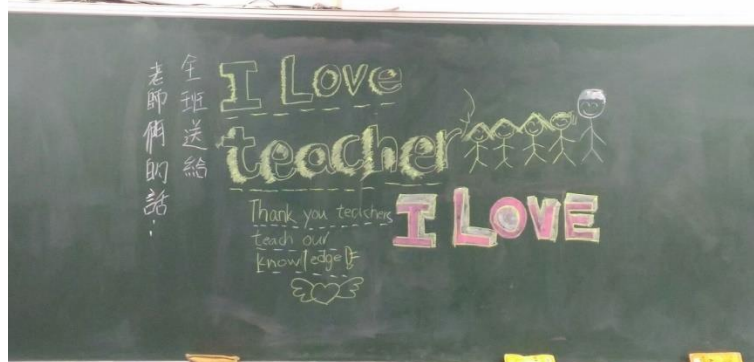 全班送給
老師們的話：
I Love
teacher
Thank you teachers
teach our
knowledge
I LOVE